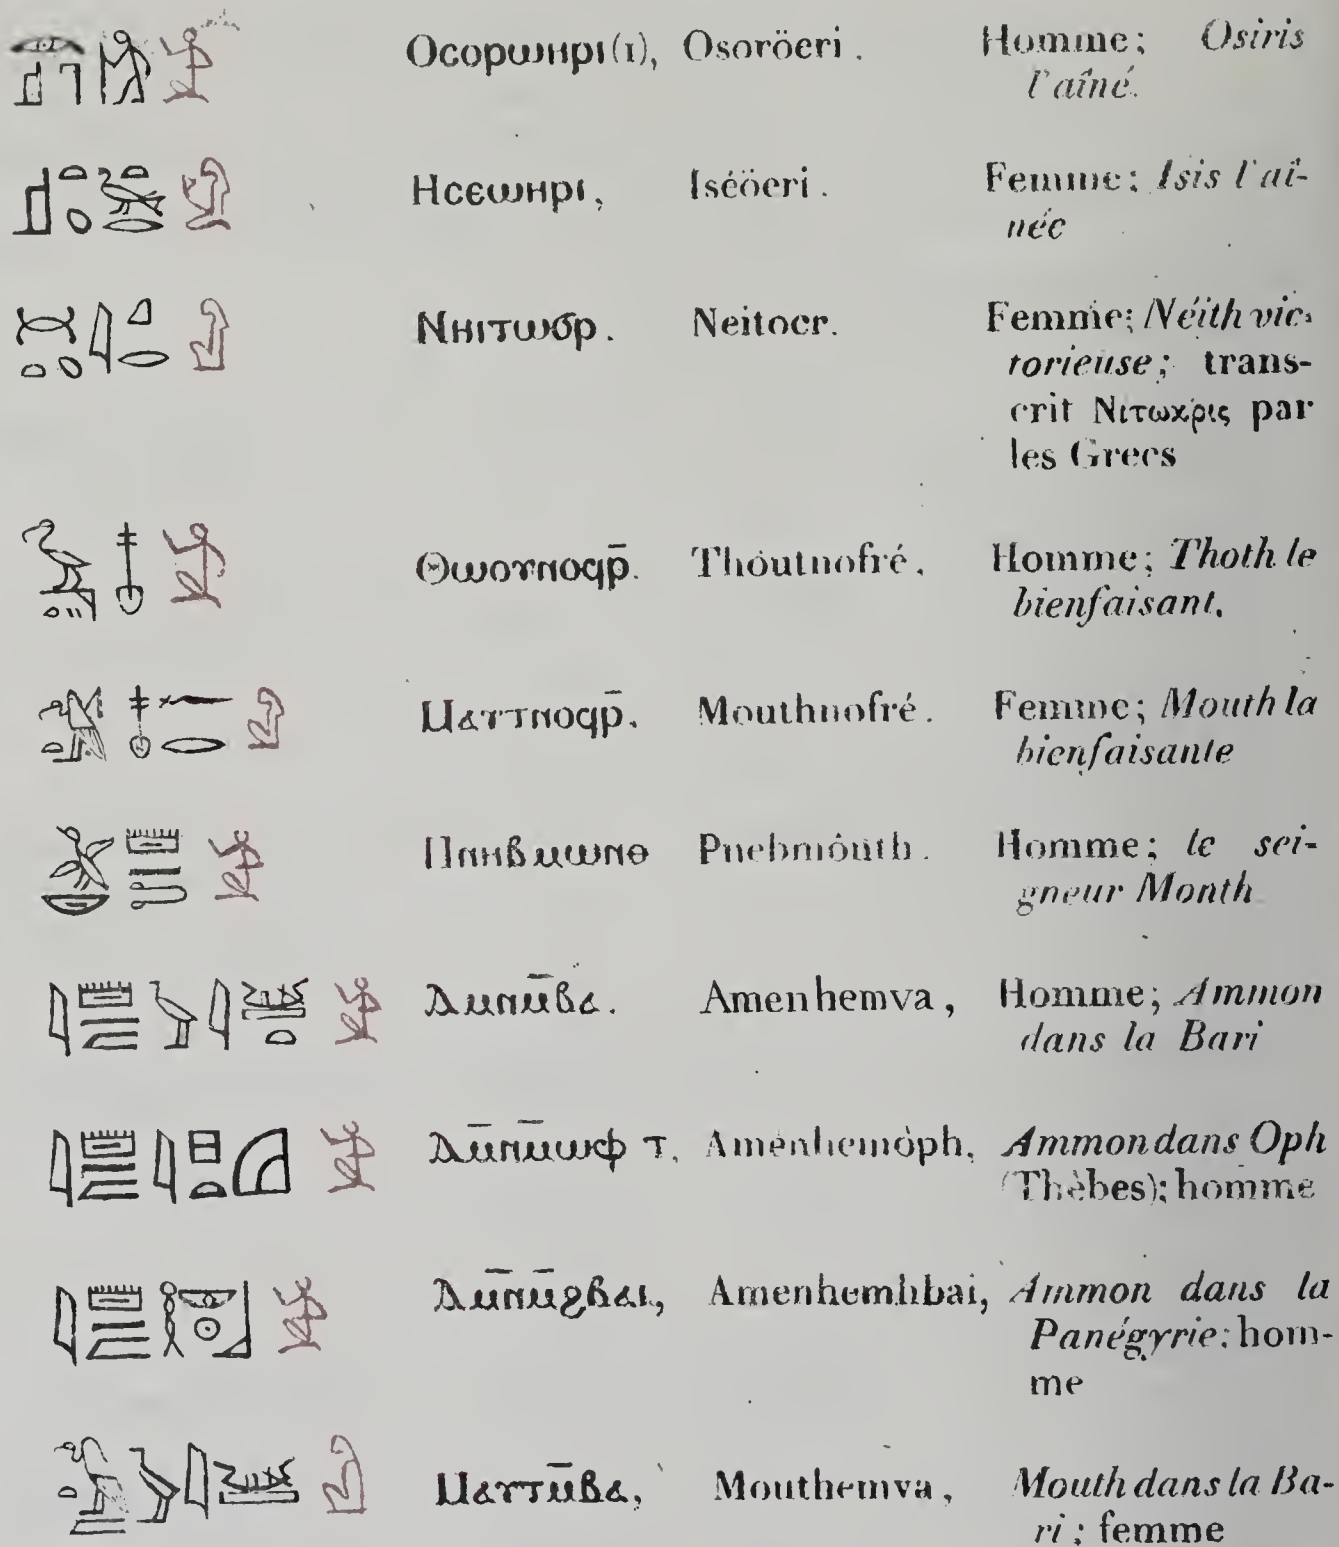 Ⲟⲥⲟⲣⲱⲏⲣⲓ(1), Osoröeri. Homme; Osiris
l'aîné.
Ⲏⲥⲉⲱⲏⲣⲓ, Iséöeri. Femme; Isis l'aî-
née
Ⲛⲏⲓⲧⲱϭⲣ. Neitocr. Femme; Néith vic-
torieuse; trans-
crit Νιτωχρις par
les Grecs
Ⲑⲱⲟⲩⲧⲛⲟϥⲣ̄. Thôutnofré. Homme; Thoth le
bienfaisant.
Ⲙⲁⲩⲧⲛⲟϥⲣ̄. Mouthnofré. Femme; Mouth la
bienfaisante
Ⲡⲛⲏⲃⲙⲱⲛⲑ Pnebmônth. Homme; le sei-
gneur Month
Ⲁⲙⲛⲙ̄ⲃⲁ. Amenhemva, Homme; Ammon
dans la Bari
Ⲁⲙ̄ⲛⲙ̄ⲱⲫ ⲧ. Amenhemôph, Ammon dans Oph
(Thèbes); homme
Ⲁⲙ̄ⲛⲙ̄ϩⲃⲁⲓ, Amenhemhbai, Ammon dans la
Panégyrie: hom-
me
Ⲙⲁⲩⲧⲙ̄ⲃⲁ, Mouthemva, Mouth dans la Ba-
ri; femme